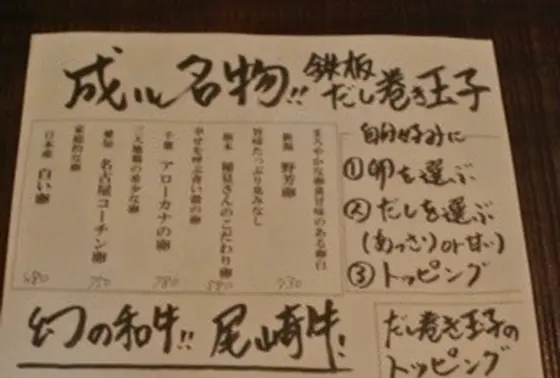 成ル名物!! 鉄板だし巻き玉子
まろやかな卵黄甘味のある卵白
新潟 野芳卵
730
旨味たっぷり臭みなし
栃木 稲見さんのこだわり卵
580
幸せを呼ぶ青い殻の卵
千葉 アローカナの卵
780
三大地鶏の希少な卵
愛知 名古屋コーチン卵
750
家庭的な卵
日本産 白い卵
480
自分好みに
①卵を選ぶ
②だしを選ぶ
(あっさりor甘い)
③トッピング
幻の和牛!! 尾崎牛!
だし巻き玉子の
トッピング